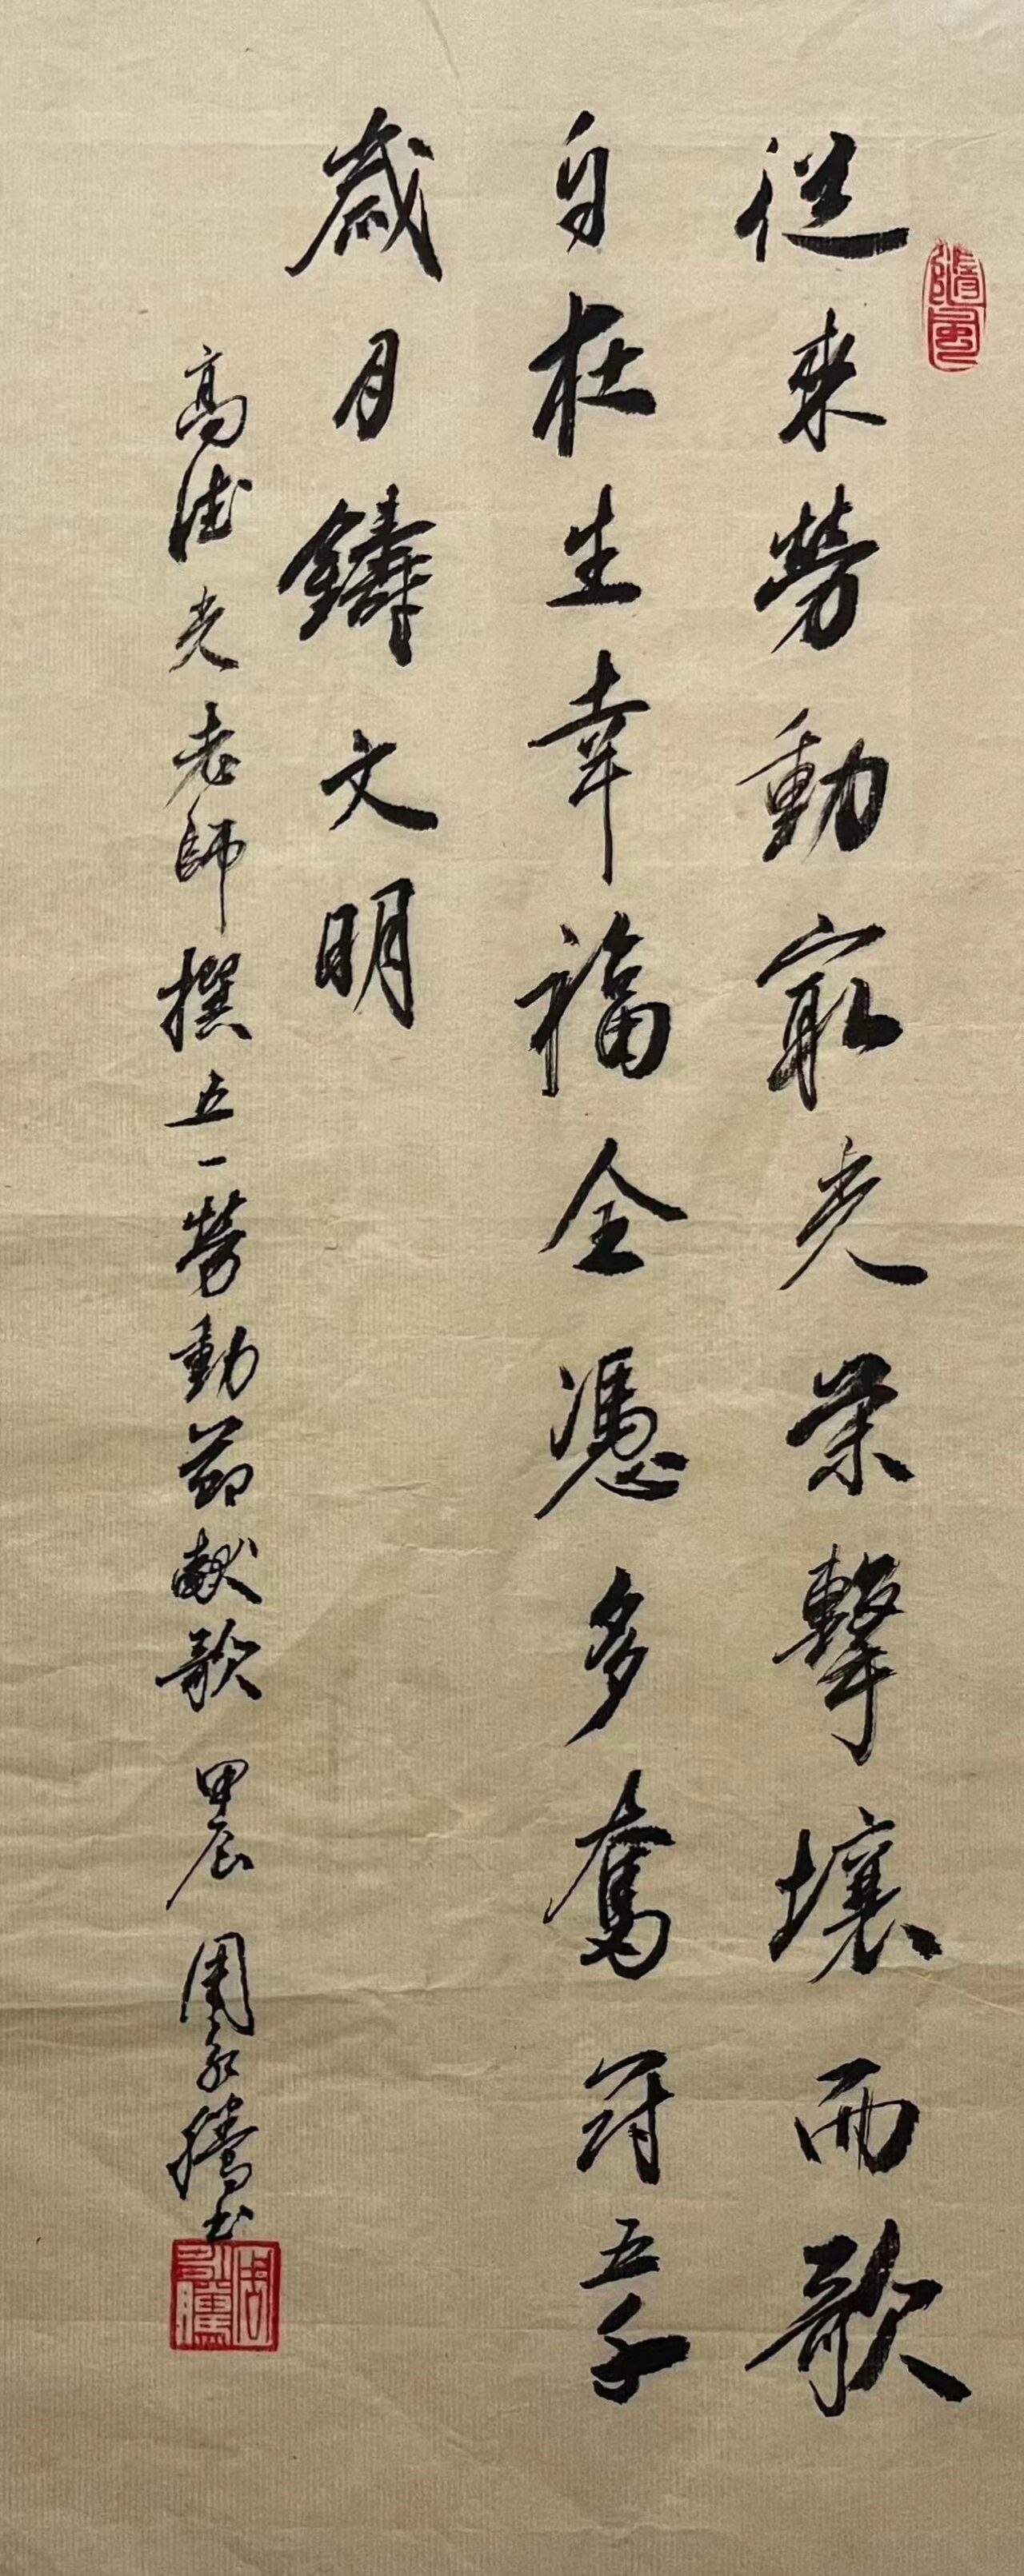 從來勞動最光榮擊壤而歌
自在生幸福全憑多奮鬥五千
歲月鑄文明
高德光老師撰五一勞動節献歌 甲辰 周永騰书
周永騰